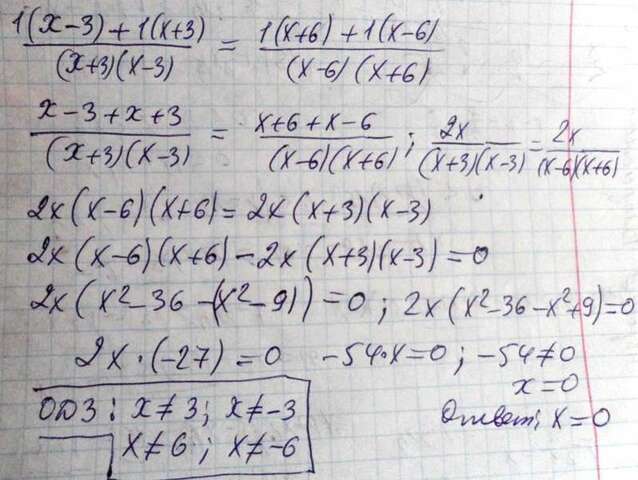 1(x-3)+1(x+3) / (x+3)(x-3) = 1(x+6)+1(x-6) / (x-6)(x+6)
x-3+x+3 / (x+3)(x-3) = x+6+x-6 / (x-6)(x+6) ; 2x / (x+3)(x-3) = 2x / (x-6)(x+6)
2x(x-6)(x+6) = 2x(x+3)(x-3)
2x(x-6)(x+6) - 2x(x+3)(x-3) = 0
2x(x²-36-(x²-9)) = 0 ; 2x(x²-36-x²+9) = 0
2x·(-27) = 0 -54·x=0 ; -54≠0
x=0
ОДЗ: x≠3; x≠-3
x≠6; x≠-6
Ответ: x=0